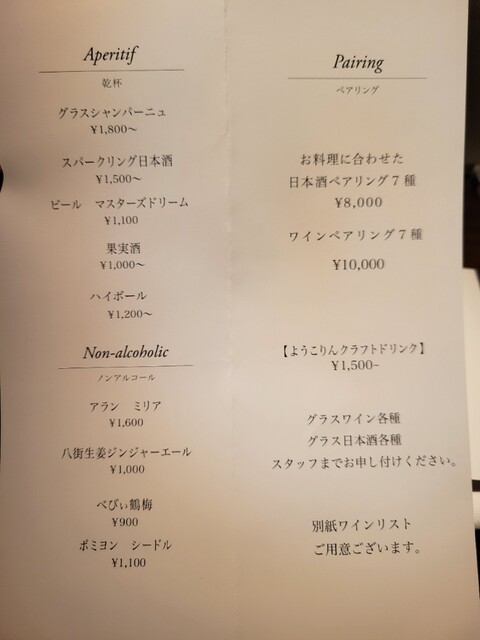 Aperitif
乾杯
グラスシャンパーニュ
¥1,800～
スパークリング日本酒
¥1,500～
ビール マスターズドリーム
¥1,100
果実酒
¥1,000～
ハイボール
¥1,200～
Non-alcoholic
ノンアルコール
アラン ミリア
¥1,600
八街生姜ジンジャーエール
¥1,000
べびぃ鶴梅
¥900
ポミヨン シードル
¥1,100
Pairing
ペアリング
お料理に合わせた
日本酒ペアリング7種
¥8,000
ワインペアリング7種
¥10,000
【ようこりんクラフトドリンク】
¥1,500~
グラスワイン各種
グラス日本酒各種
スタッフまでお申し付けください。
別紙ワインリスト
ご用意ございます。